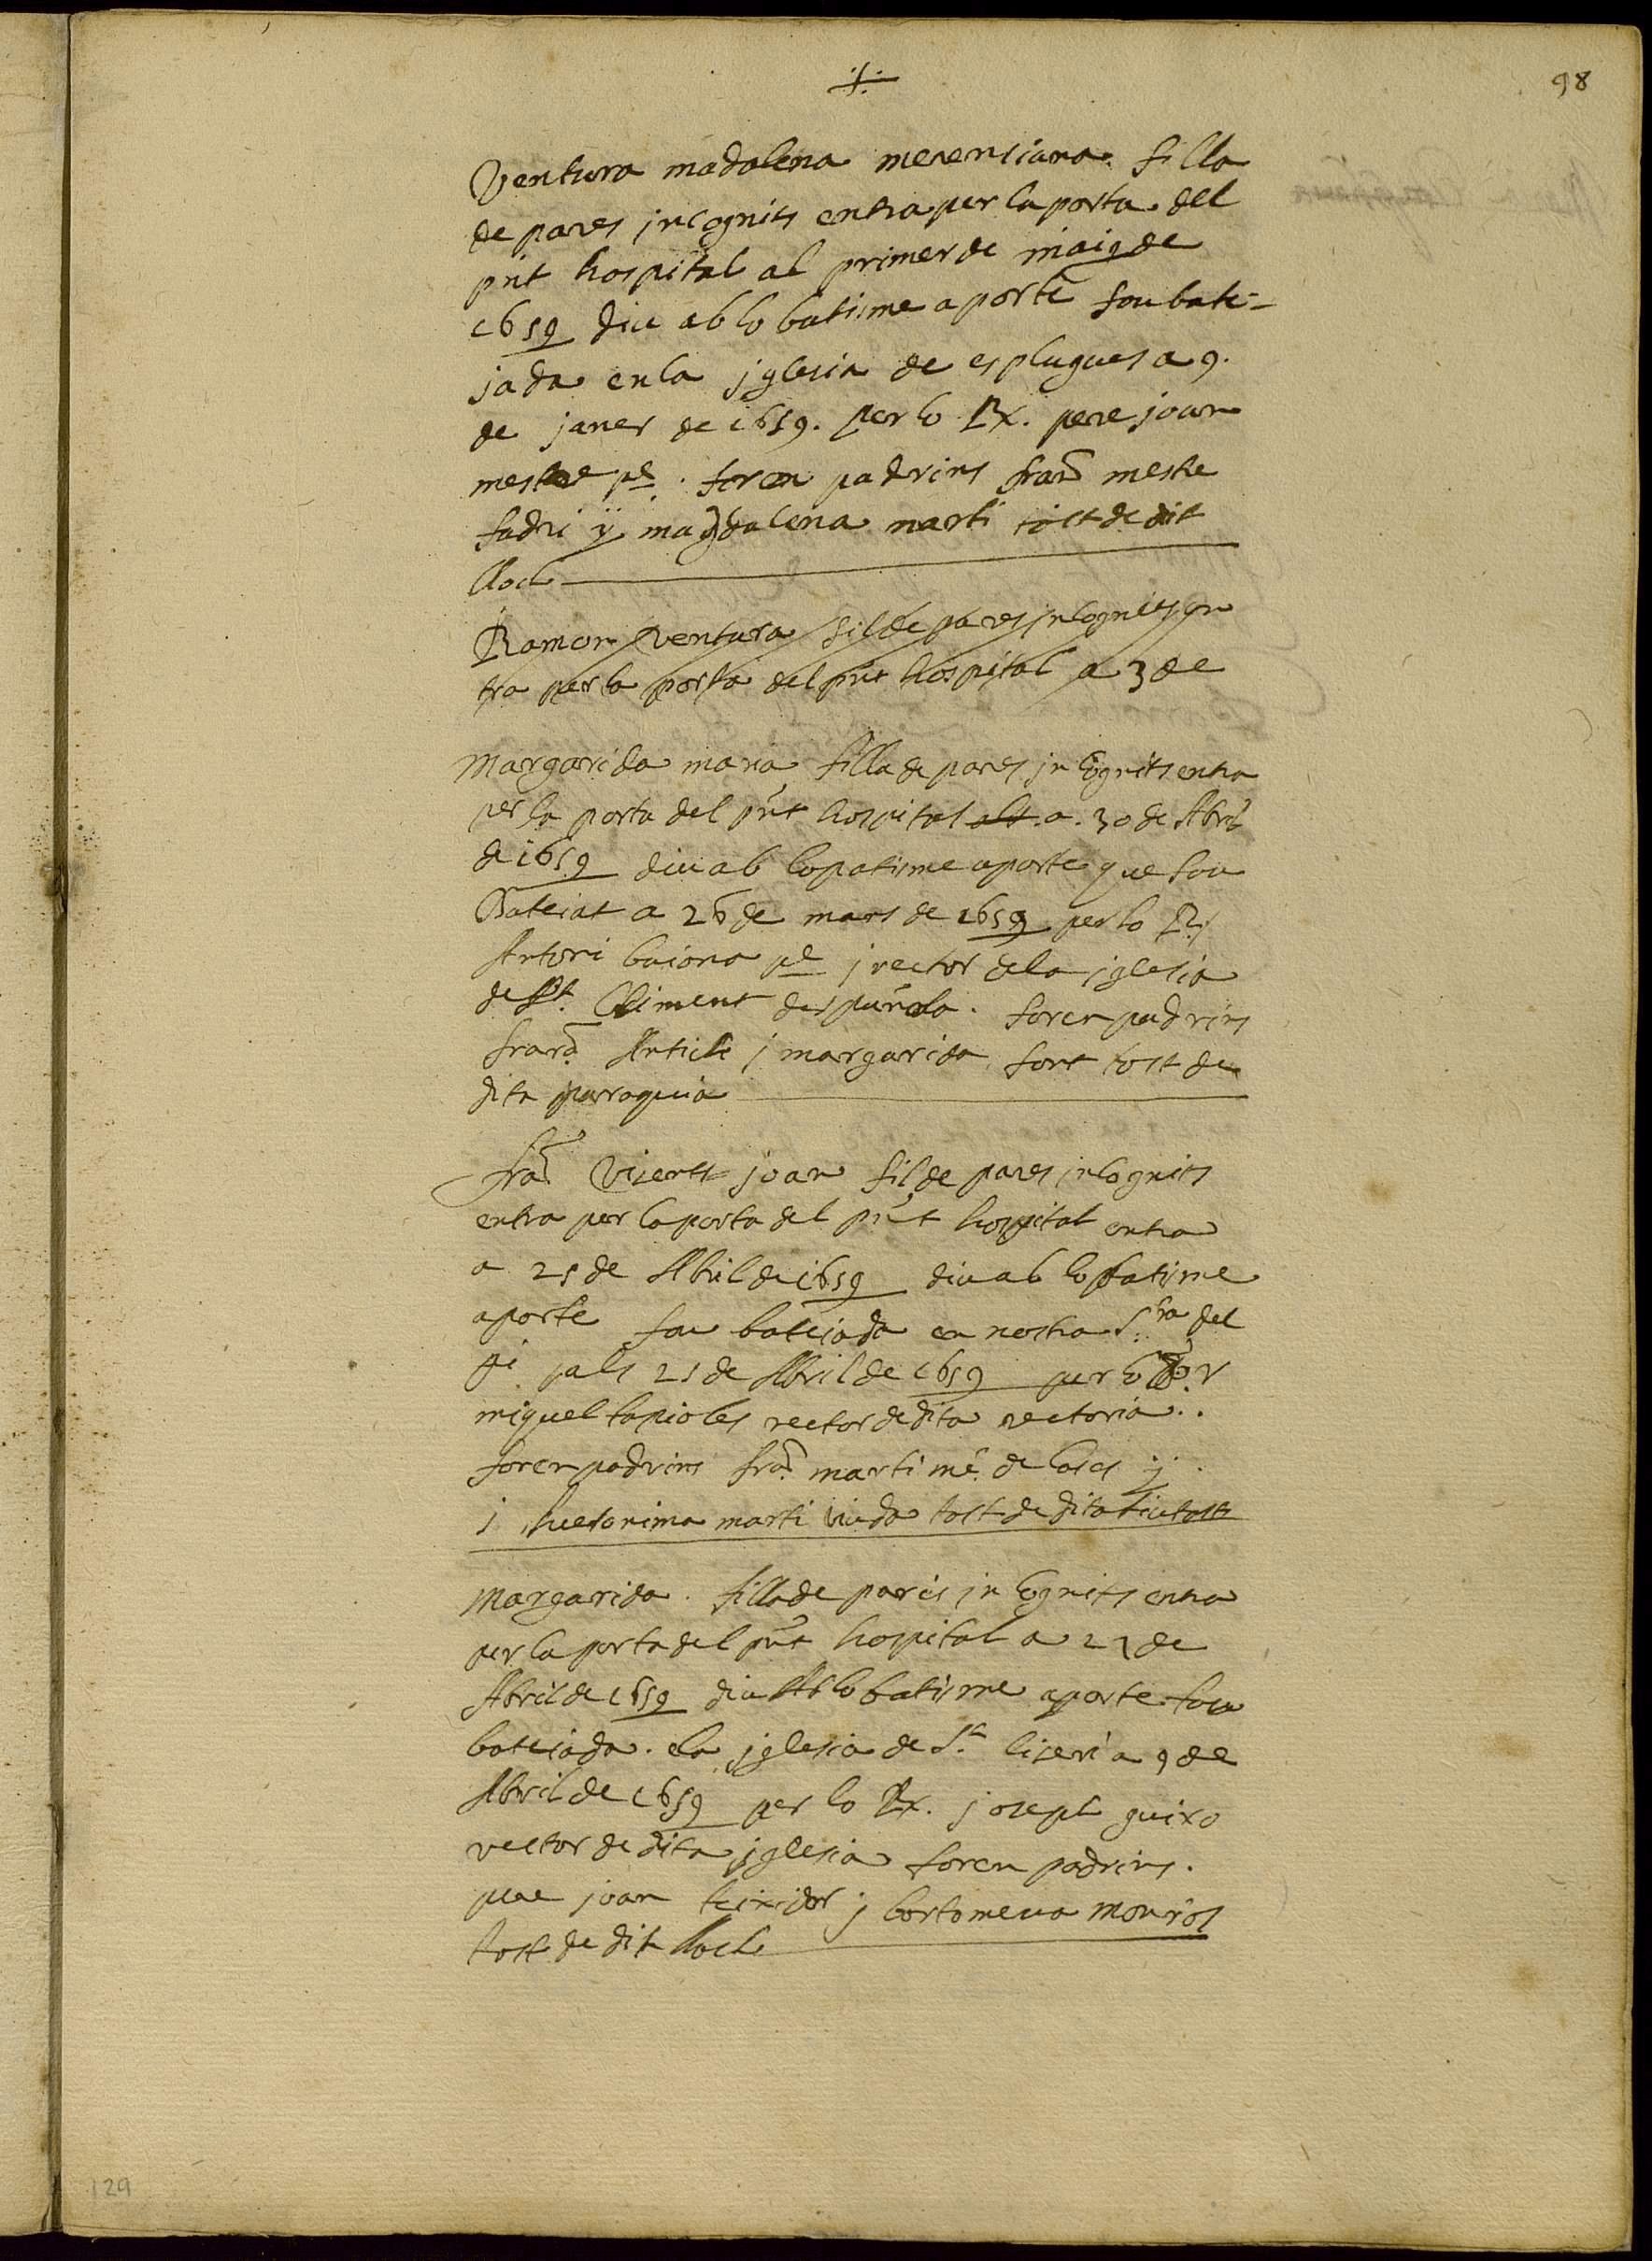 98
Ventura madalena merensiana filla
de pares jncognits entra per la porta del
pnt hospital al primer de maig de
1659 diu ab lo batisme aporte fou bate=
jada en la jglesia de esplugues a 9.
de janer de 1659. per lo Rx. pere joan
mestre pe. foren padrins franc mestre
fadri y magdalena marti tost de dit
lloch
Ramon Ventura fil de pares jncognits en
tra per la porta del pnt hospital a 3 de
Margarida maria filla de pares jncognits entra
per la porta del pnt hospital a. 30 de Abril
de 1659 diu ab lo patisme aporte que fou
Bateiat a 26 de mars de 1659 per lo Rt
Antoni baiona pe j rector de la jglesia
de St. Climent foren padrins
franc Antich j margarida font tost de
dita parroquia
franc Visent joan fil de pares jncognits
entra per la porta del pnt hospital entra
a 25 de Abril de 1659 diu ab lo batisme
aporte fou bateiada en nostra S.ra del
Pi als 21 de Abril de 1659 per lo
miquel tapioles rector de dita rectoria..
foren padrins franc marti me. de cases j.
j hieronima marti viuda tost de dita siutatt
Margarida. filla de pares jncognits entra
per la porta del pnt hospital a 21 de
Abril de 1659 diu Ab lo batisme aporte fou
bateiada. ela jglesia de St liseri a 9 de
Abril de 1659 per lo Rx. joseph guixo
rector de dita jglesia foren padrins.
pere joan teixidor j bortomeua monros
tost de dit lloch
129